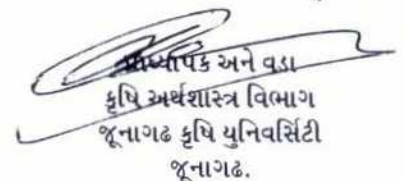 પ્રાધ્યાપક અને વડા
કૃષિ અર્થશાસ્ત્ર વિભાગ
જૂનાગઢ કૃષિ યુનિવર્સિટી
જૂનાગઢ.